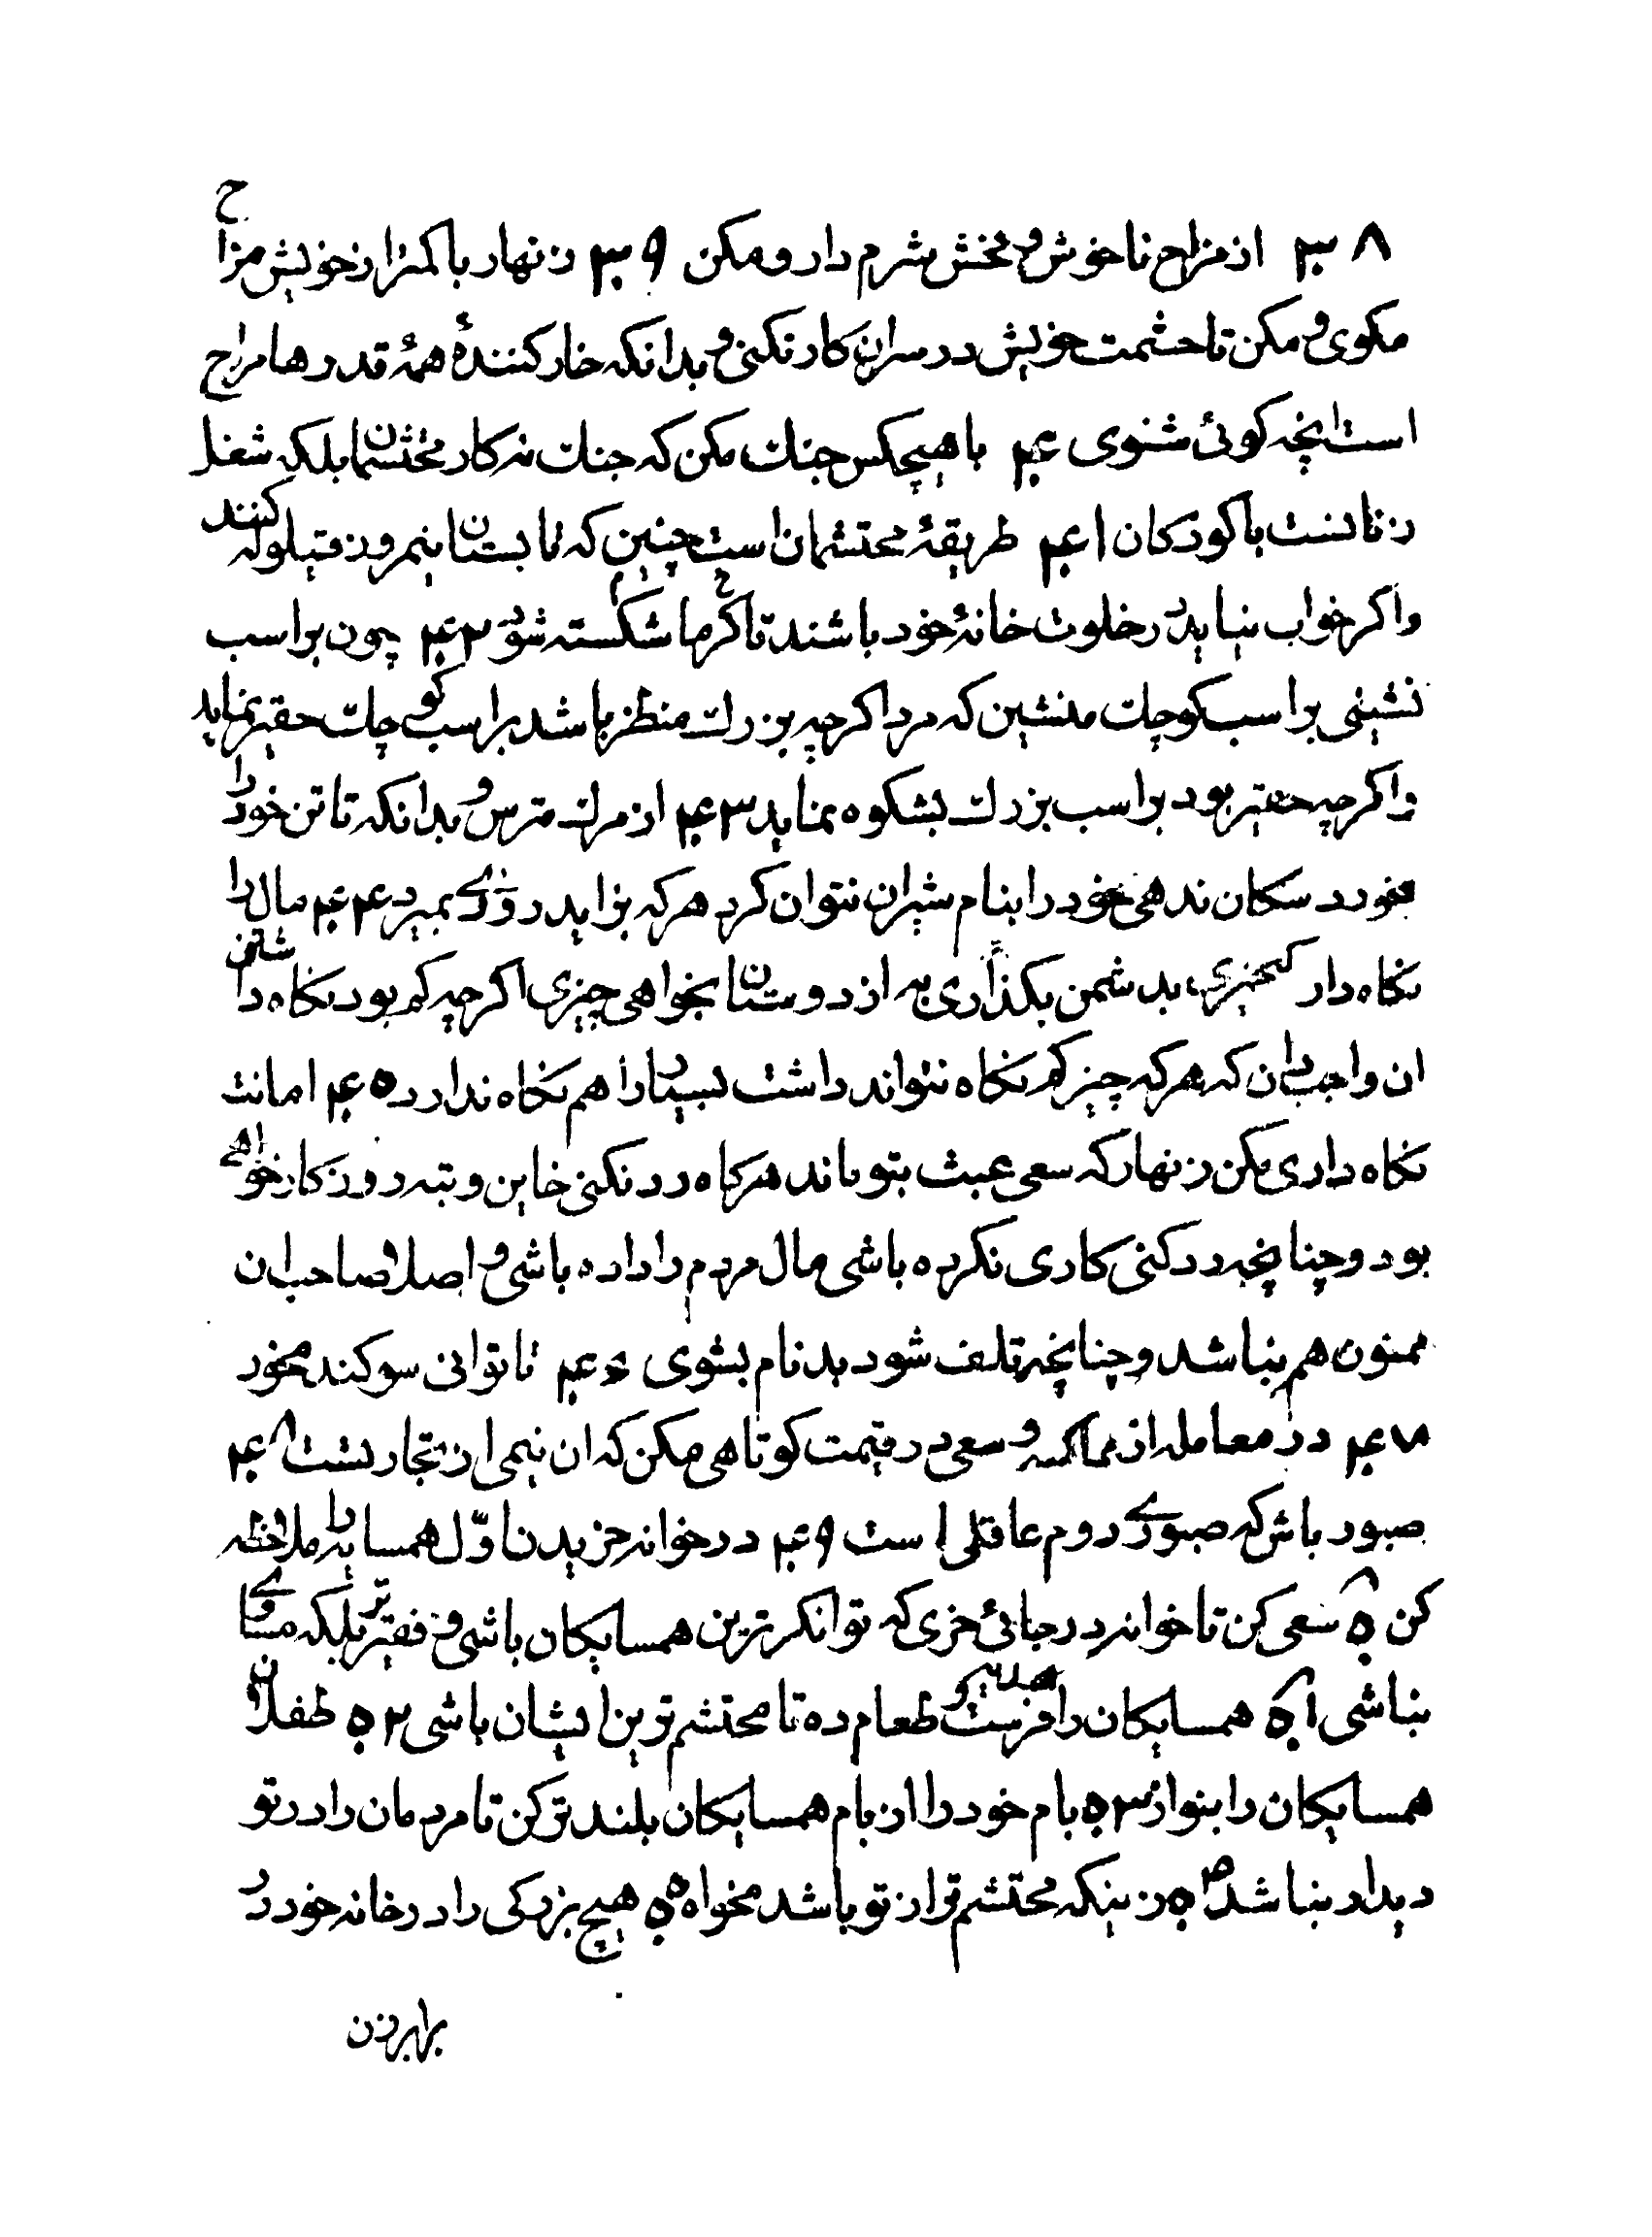 ۳۸ از مزاح ناخوش و فحش شرم دار و مکن ۳۹ زنهار با کمتر از خویش مزاح
مکوی و مکن تا حشمت خویش در سر ان کار نکنی و بدانکه خار کنندهٔ همهٔ قدرها مزاح
است انچه کوئی شنوی ۴۰ با هیچکس جنك مکن که جنك نه کار محتشمان بلکه شغل
زنانست با کودکان ۴۱ طریقهٔ محتشمان است چنین که تابستان نیمروز قیلوله کنند
و اکر خواب نیاید در خلوت خانهٔ خود باشند تا کرما شکسته شود ۴۲ چون بر اسب
نشینی بر اسب کوچك منشین که مرد اکرچه بزرك منظر باشد بر اسب کوچك حقیر نماید
و اکرچه حقیر بود بر اسب بزرك بشکوه نماید ۴۳ از مرك مترس و بدانکه تا تن خود را
بخورد سکان ندهی خود را بنام شیران نتوان کرد هر که بزاید روزی بمیرد ۴۴ مال را
نکاه دار که چیزی بدشمن بکذاری به از دوستان بخواهی چیزی اکرچه کم بود نکاه داشتن
ان واجب دان که هر که چیز کم نکاه نتواند داشت بسیار را هم نکاه ندارد ۴۵ امانت
نکاه داری مکن زنهار که سعی عبث بتو ماند هرکاه رد نکنی خاین و تبه روزکار خواهی
بود و چنانچه رد کنی کاری نکرده باشی مال مردم را داده باشی و اصلا صاحب ان
ممنون هم نباشد و چنانچه تلف شود بدنام بشوی ۴۶ تا توانی سوکند مخور
۴۷ در معامله از مماکسه و سعی در قیمت کوتاهی مکن که ان نیمی از تجارتست ۴۸
صبور باش که صبوری دوم عاقلی است ۴۹ در خوانه خریدن اوّل همسایه را ملاحظه
کن ۵۰ سعی کن تا خوانه در جائی خری که توانکرترین همسایکان باشی و فقیرتر بلکه مساوی
نباشی ۵۱ همسایکان را هدیه فرست و طعام ده تا محتشم ترین ایشان باشی ۵۲ طفلان
همسایکان را بنواز ۵۳ بام خود را از بام همسایکان بلندتر کن تا مردمان را در تو
دیدار نباشد ۵۴ زنیکه محتشم تر از تو باشد مخواه ۵۵ هیچ بزرکی را در خانه خود در
برابر زن